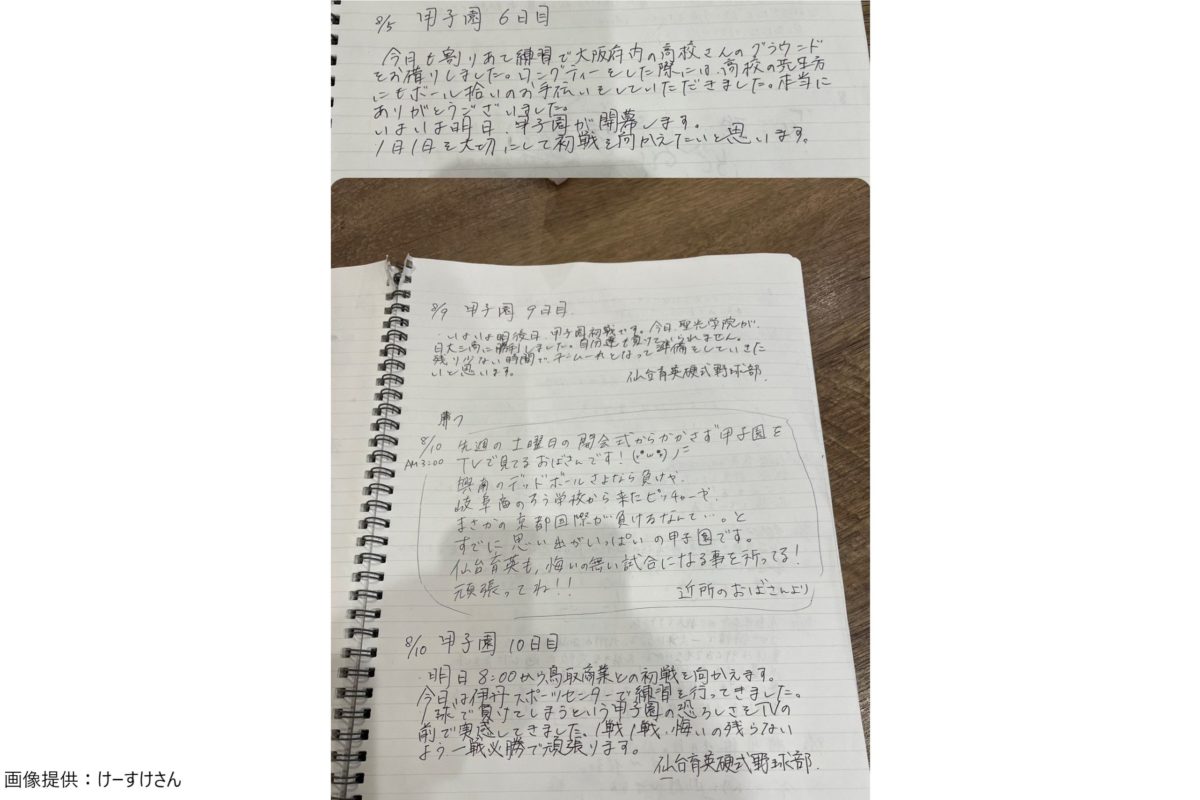 8/5 甲子園 6日目
今日も割りあて練習で大阪府内の高校さんのグラウンド
をお借りしました。ロングティーをした際には、高校の先生方
にもボール拾いのお手伝いをしていただきました。本当に
ありがとうございました。
いよいよ明日、甲子園が開幕します。
1日1日を大切にして初戦を向かえたいと思います。
8/9 甲子園 9日目
・いよいよ明後日、甲子園初戦です。今日、聖光学院が、
日大三高に勝利しました。自分達も負けていられません。
残り少ない時間で、チーム一丸となって準備をしていきた
いと思います。
仙台育英硬式野球部.
8/10 先週の土曜日の開会式からかかさず甲子園を
AM3:00 TVで見てるおばさんです!(*^ω^*)ノ
興南のデッドボールさよなら負けや、
岐阜商のろう学校から来たピッチャーや、
まさかの京都国際が負けるなんて…。と
すでに思い出がいっぱいの甲子園です。
仙台育英も、悔いの無い試合になる事を祈ってる!
頑張ってね!!
近所のおばさんより
8/10 甲子園 10日目
・明日8:00から鳥取商業との初戦を向かえます。
今日は伊丹スポーツセンターで練習を行ってきました。
1球で負けてしまうという甲子園の恐ろしさをTVの
前で実感してきました。1戦1戦、悔いの残らない
よう一戦必勝で頑張ります。
仙台育英硬式野球部.
画像提供：けーすけさん